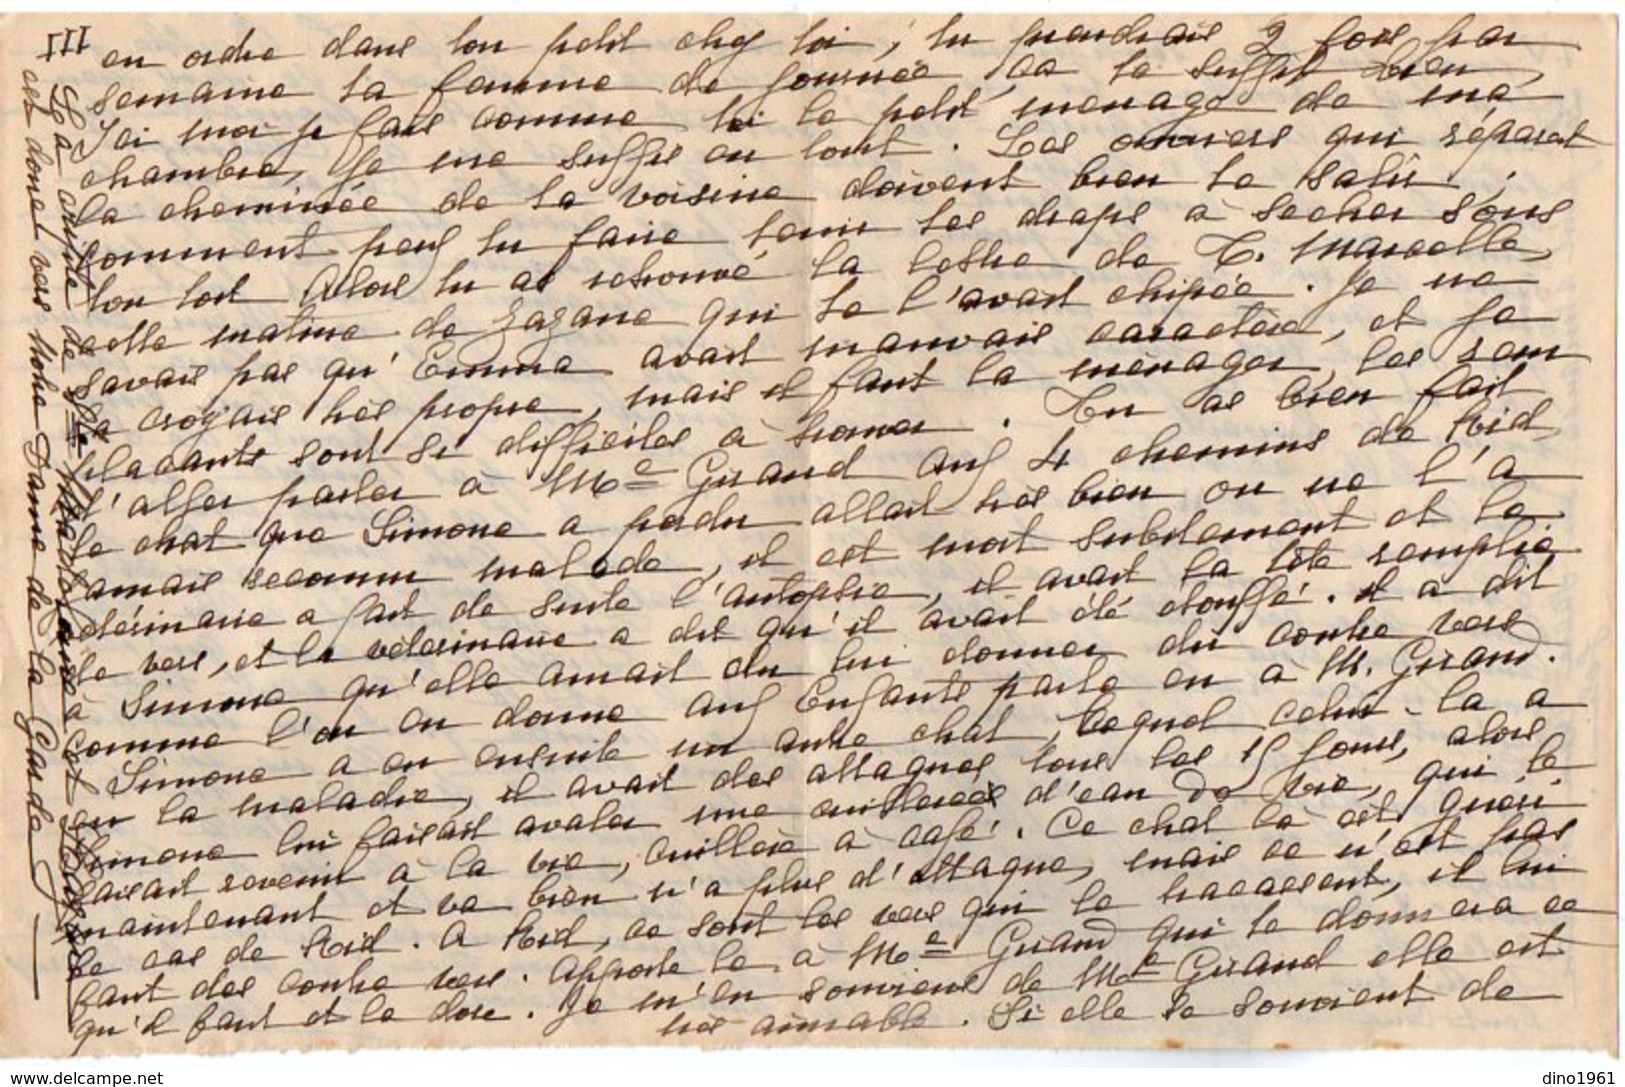 III
en ordre dans ton petit chez toi, tu prendrais 2 fois par
semaine ta femme de journée, ca te suffit bien,
Ici moi je fais comme toi le petit menage de ma
chambre, je me suffis en tout. Les ouvriers qui réparent
la cheminée de ta voisine doivent bien te salir.
Comment peux tu faire tenir tes draps à secher sous
ton toit Alors tu as retrouvé la lettre de T. Marcelle,
cette matine de Zazane qui te l'avait chipée. Je ne
savais pas qu'Emma avait mauvais caractère, et je
la croyais très propre, mais il faut la ménager, les rem
plaçants sont si difficiles à trouver. Tu as bien fait
d'aller parler à Me Guiand aux 4 chemins de Kid,
le chat que Simone a perdu allait très bien on ne l'a
jamais reconnu malade, il est mort subitement et le
vétérinaire a fait de suite l'autopsie, il avait la tête remplie
de vers, et le véterinaire a dit qu'il avait été étouffé. il a dit
à Simone qu'elle aurait du lui donner du contre vers
comme l'on en donne aux Enfants parle en à M. Guiand.
Simone a eu ensuite un autre chat, lequel celui-la a
eu la maladie, il avait des attaques tous les 15 jours, alors
Simone lui faisait avaler une cuillerée d'eau de vie, qui le
faisait revenir à la vie, cuillère à café. Ce chat là est guéri
maintenant et va bien n'a plus d'attaque, mais ce n'est pas
le cas de Kid. A Kid, ce sont les vers qui le tracassent, il lui
faut des contre vers. Apporte le à Me Guiand qui te donnera ce
qu'il faut et la dose. Je m'en souviens de Me Guiand elle est
très aimable. Si elle se souvient de
La crypte de Ste
est donc vers Notre Dame de la Garde
www.delcampe.net
dino1961